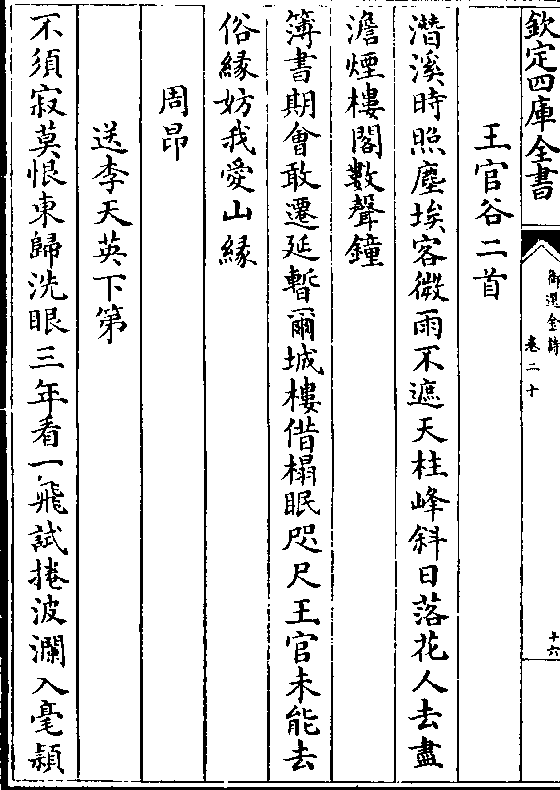 欽定四庫全書
御選金詩
卷二十
十六
王官谷二首
潛溪時照塵埃客微雨不遮天柱峰斜日落花人去盡
澹煙樓閣數聲鐘
簿書期會敢遷延暫爾城樓借榻眠咫尺王官未能去
俗緣妨我愛山緣
周昂
送李天英下第
不須寂莫恨東歸洗眼三年看一飛試捲波瀾入毫穎